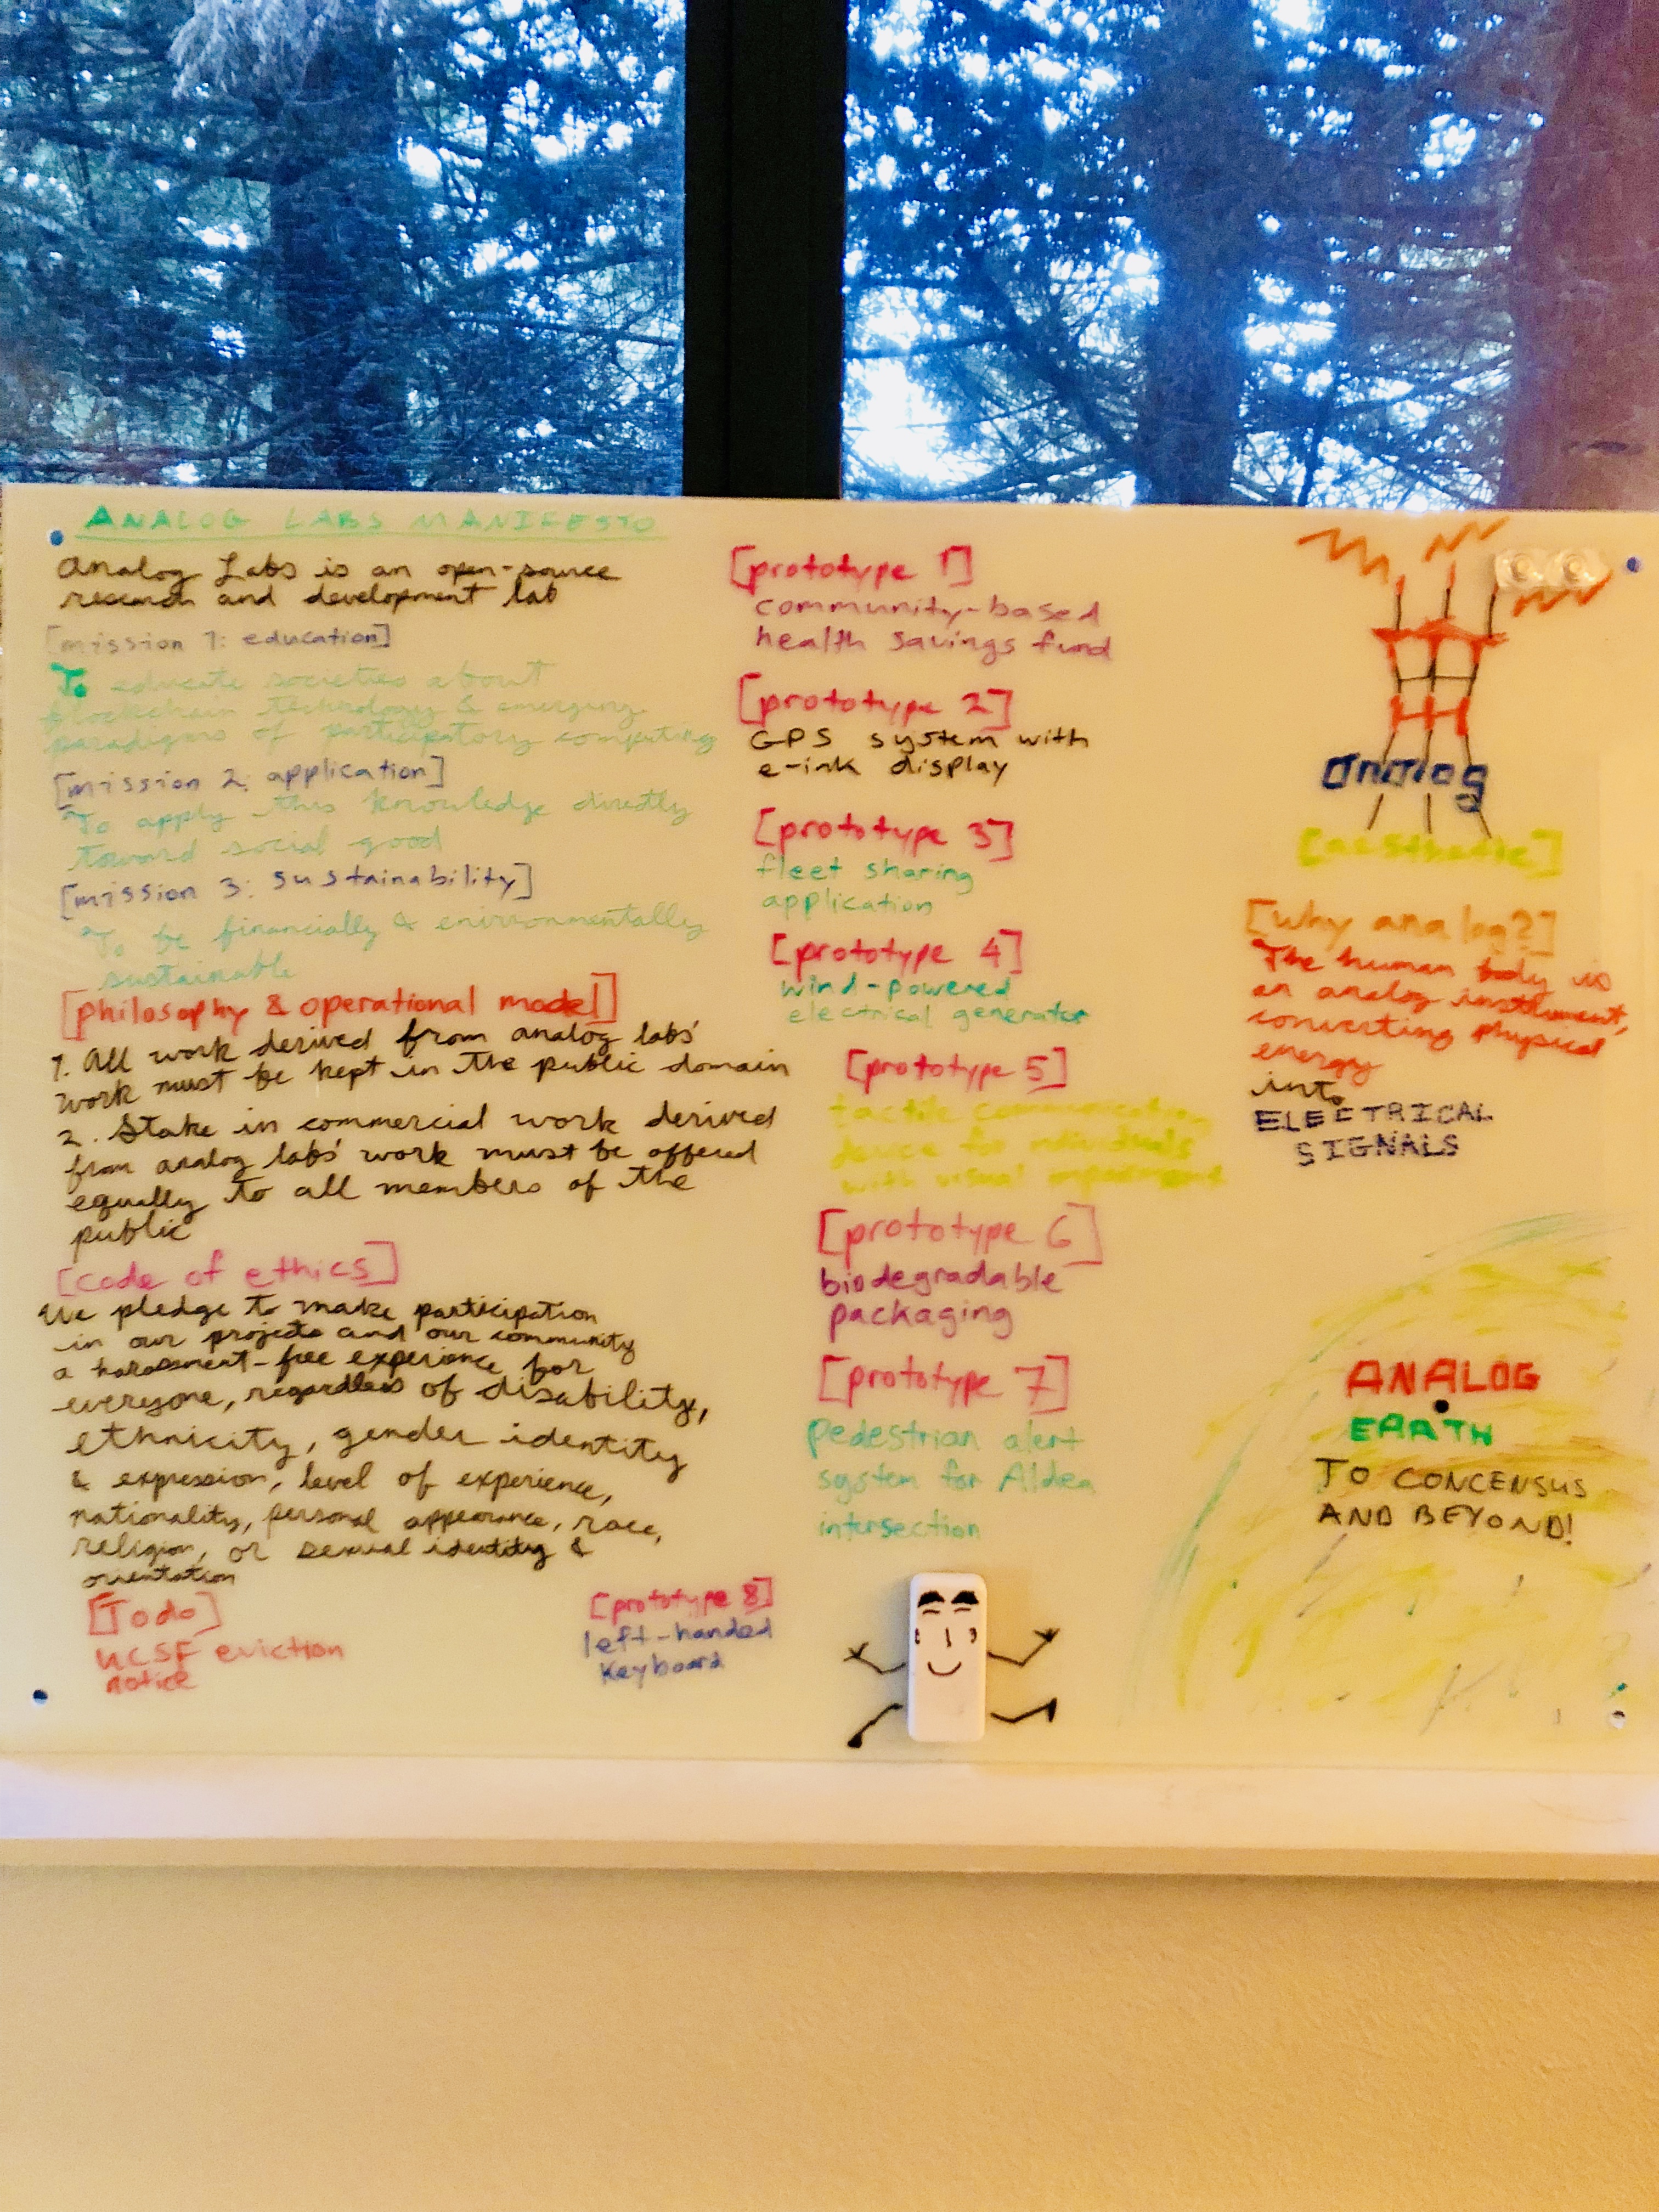 ANALOG LABS MANIFESTO
Analog Labs is an open-source
research and development lab
[mission 1: education]
To educate societies about
blockchain technology & emerging
paradigms of participatory computing
[mission 2: application]
To apply this knowledge directly
toward social good
[mission 3: sustainability]
To be financially & environmentally
sustainable
[philosophy & operational model]
1. All work derived from analog labs'
work must be kept in the public domain
2. Stake in commercial work derived
from analog labs' work must be offered
equally to all members of the
public
[code of ethics]
We pledge to make participation
in our projects and our community
a harassment-free experience for
everyone, regardless of disability,
ethnicity, gender identity
& expression, level of experience,
nationality, personal appearance, race,
religion, or sexual identity &
orientation
[Todo]
UCSF eviction
notice
[prototype 1]
community-based
health savings fund
[prototype 2]
GPS system with
e-ink display
[prototype 3]
fleet sharing
application
[prototype 4]
wind-powered
electrical generator
[prototype 5]
tactile communication
device for individuals
with visual impairment
[prototype 6]
biodegradable
packaging
[prototype 7]
pedestrian alert
system for Aldea
intersection
[prototype 8]
left-handed
keyboard
analog
[aesthetic]
[why analog?]
The human body is
an analog instrument,
converting physical
energy
into
ELECTRICAL
SIGNALS
ANALOG
EARTH
TO CONCENSUS
AND BEYOND!